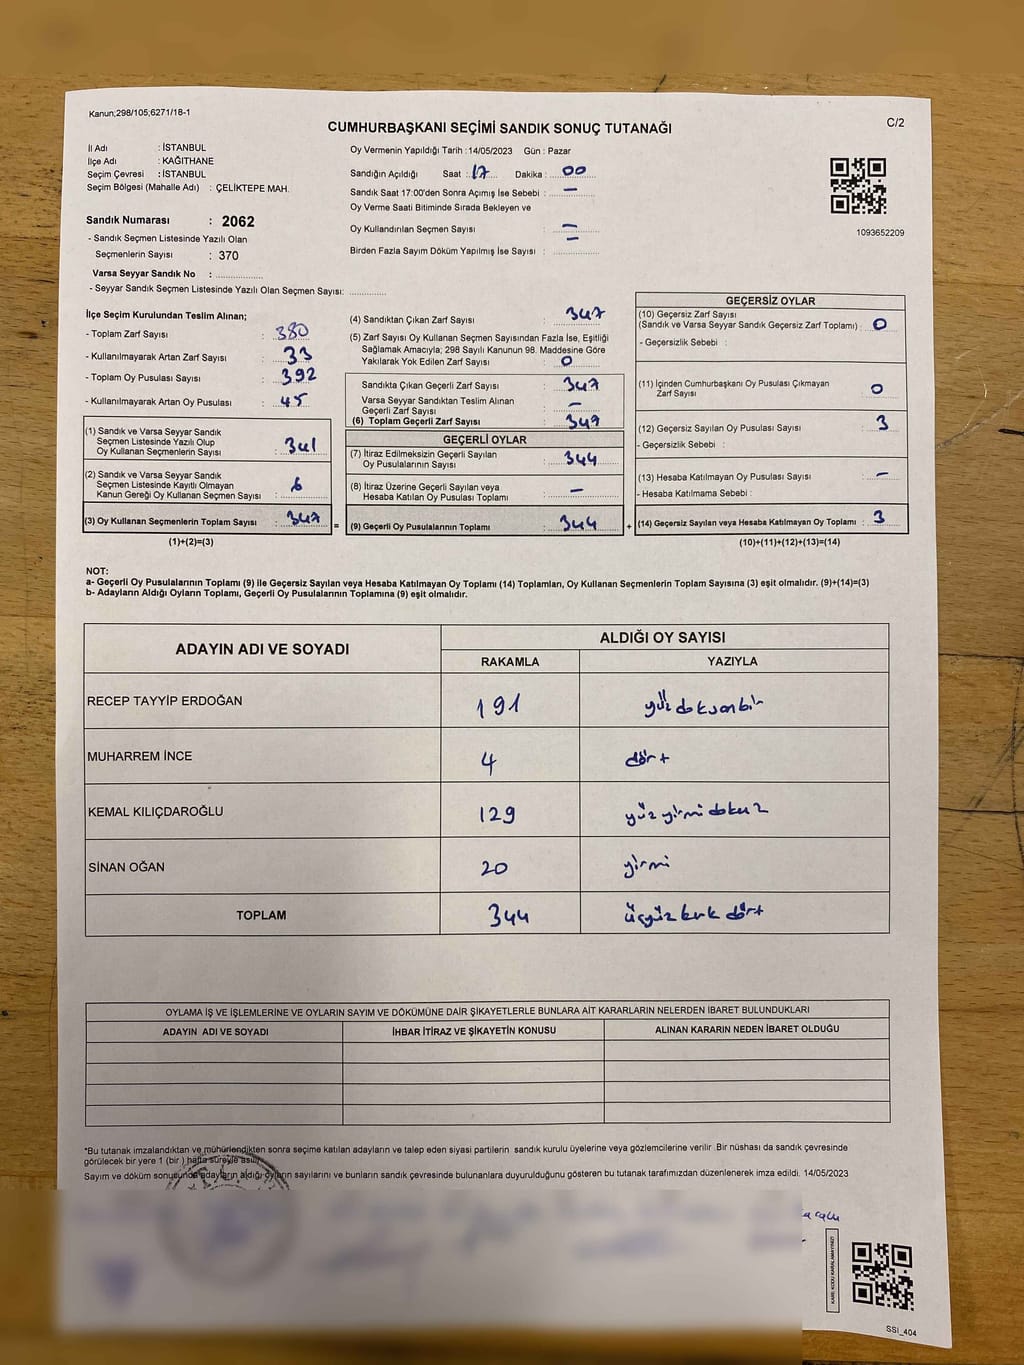 Kanun;298/105;6271/18-1
C/2
CUMHURBAŞKANI SEÇİMİ SANDIK SONUÇ TUTANAĞI
İl Adı : İSTANBUL
İlçe Adı : KAĞITHANE
Seçim Çevresi : İSTANBUL
Seçim Bölgesi (Mahalle Adı) : ÇELİKTEPE MAH.
Sandık Numarası : 2062
- Sandık Seçmen Listesinde Yazılı Olan
Seçmenlerin Sayısı : 370
Varsa Seyyar Sandık No :
- Seyyar Sandık Seçmen Listesinde Yazılı Olan Seçmen Sayısı:
Oy Vermenin Yapıldığı Tarih : 14/05/2023 Gün : Pazar
Sandığın Açıldığı Saat : 17 Dakika : 00
Sandık Saat 17:00'den Sonra Açımış İse Sebebi : —
Oy Verme Saati Bitiminde Sırada Bekleyen ve
Oy Kullandırılan Seçmen Sayısı : —
Birden Fazla Sayım Döküm Yapılmış İse Sayısı : —
1093652209
İlçe Seçim Kurulundan Teslim Alınan;
- Toplam Zarf Sayısı : 380
- Kullanılmayarak Artan Zarf Sayısı : 33
- Toplam Oy Pusulası Sayısı : 392
- Kullanılmayarak Artan Oy Pusulası : 45
(1) Sandık ve Varsa Seyyar Sandık
Seçmen Listesinde Yazılı Olup
Oy Kullanan Seçmenlerin Sayısı : 341
(2) Sandık ve Varsa Seyyar Sandık
Seçmen Listesinde Kayıtlı Olmayan
Kanun Gereği Oy Kullanan Seçmen Sayısı : 6
(3) Oy Kullanan Seçmenlerin Toplam Sayısı : 347 =
(1)+(2)=(3)
(4) Sandıktan Çıkan Zarf Sayısı : 347
(5) Zarf Sayısı Oy Kullanan Seçmen Sayısından Fazla İse, Eşitliği
Sağlamak Amacıyla; 298 Sayılı Kanunun 98. Maddesine Göre
Yakılarak Yok Edilen Zarf Sayısı : 0
Sandıkta Çıkan Geçerli Zarf Sayısı : 347
Varsa Seyyar Sandıktan Teslim Alınan
Geçerli Zarf Sayısı : —
(6) Toplam Geçerli Zarf Sayısı : 347
GEÇERLİ OYLAR
(7) İtiraz Edilmeksizin Geçerli Sayılan
Oy Pusulalarının Sayısı : 344
(8) İtiraz Üzerine Geçerli Sayılan veya
Hesaba Katılan Oy Pusulası Toplamı : —
(9) Geçerli Oy Pusulalarının Toplamı : 344 +
GEÇERSİZ OYLAR
(10) Geçersiz Zarf Sayısı
(Sandık ve Varsa Seyyar Sandık Geçersiz Zarf Toplamı) : 0
- Geçersizlik Sebebi :
(11) İçinden Cumhurbaşkanı Oy Pusulası Çıkmayan
Zarf Sayısı : 0
(12) Geçersiz Sayılan Oy Pusulası Sayısı : 3
- Geçersizlik Sebebi :
(13) Hesaba Katılmayan Oy Pusulası Sayısı : —
- Hesaba Katılmama Sebebi :
(14) Geçersiz Sayılan veya Hesaba Katılmayan Oy Toplamı : 3
(10)+(11)+(12)+(13)=(14)
NOT:
a- Geçerli Oy Pusulalarının Toplamı (9) ile Geçersiz Sayılan veya Hesaba Katılmayan Oy Toplamı (14) Toplamları, Oy Kullanan Seçmenlerin Toplam Sayısına (3) eşit olmalıdır. (9)+(14)=(3)
b- Adayların Aldığı Oyların Toplamı, Geçerli Oy Pusulalarının Toplamına (9) eşit olmalıdır.
ADAYIN ADI VE SOYADI ALDIĞI OY SAYISI
RAKAMLA YAZIYLA
RECEP TAYYİP ERDOĞAN 191 yüz doksanbir
MUHARREM İNCE 4 dört
KEMAL KILIÇDAROĞLU 129 yüz yirmi dokuz
SİNAN OĞAN 20 yirmi
TOPLAM 344 üçyüz kırk dört
OYLAMA İŞ VE İŞLEMLERİNE VE OYLARIN SAYIM VE DÖKÜMÜNE DAİR ŞİKAYETLERLE BUNLARA AİT KARARLARIN NELERDEN İBARET BULUNDUKLARI
ADAYIN ADI VE SOYADI İHBAR İTİRAZ VE ŞİKAYETİN KONUSU ALINAN KARARIN NEDEN İBARET OLDUĞU
*Bu tutanak imzalandıktan ve mühürlendikten sonra seçime katılan adayların ve talep eden siyasi partilerin sandık kurulu üyelerine veya gözlemcilerine verilir. Bir nüshası da sandık çevresinde
görülecek bir yere 1 (bir ) hafta süreyle asılır.
Sayım ve döküm sonucunda adayların aldığı oyların sayılarını ve bunların sandık çevresinde bulunanlara duyurulduğunu gösteren bu tutanak tarafımızdan düzenlenerek imza edildi. 14/05/2023
KARE KODU KARALAMAYINIZ!
SSİ_404